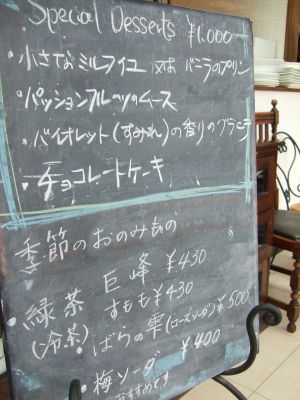 Special Desserts ¥1,000
・小さなミルフイユ 又は バニラのプリン
・パッションフルーツのムース
・バイオレット(すみれ)の香りのグラニテ
・チョコレートケーキ
季節のおのみもの
緑茶 巨峰 ¥430
(冷茶) すもも ¥430
ばらの雫(ローズソーダ) ¥500
・梅ソーダ ¥400
おすすめです